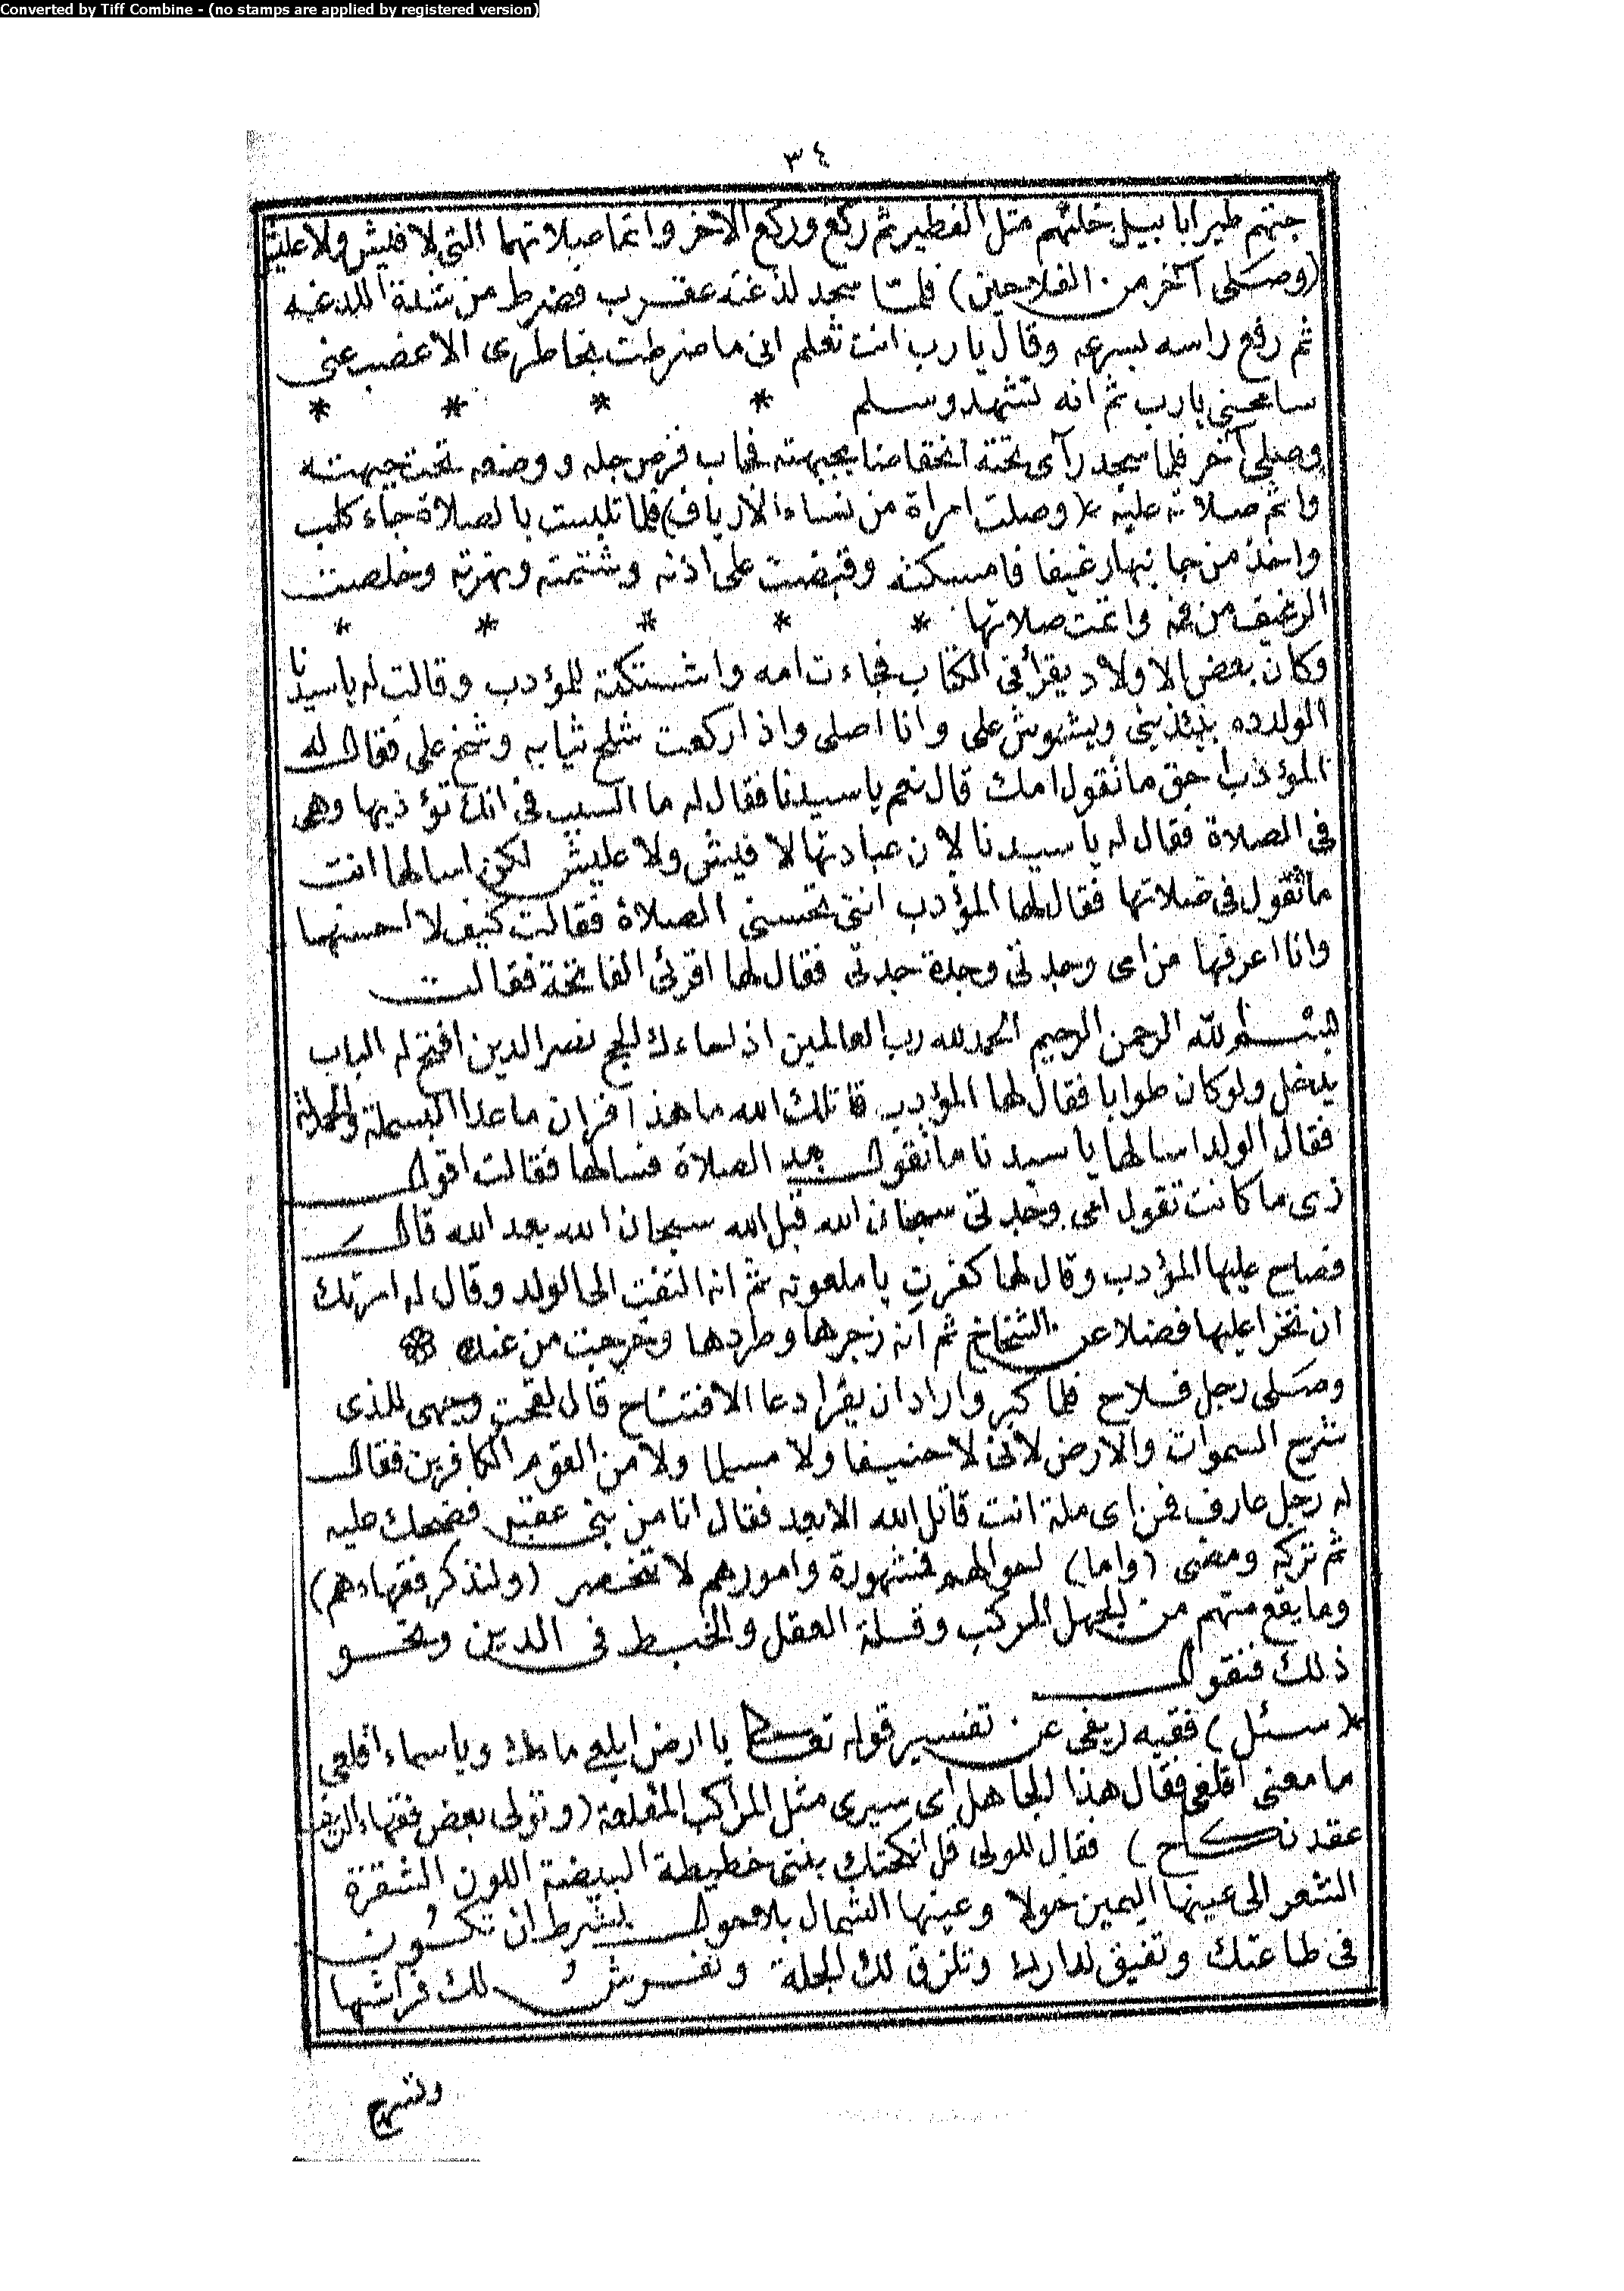 Converted by Tiff Combine - (no stamps are applied by registered version)
٣٤
جتهم طيرا بابيل خلتهم مثل الفطير ثم ركع وركع الاخر واتما صلاتهما التى لا فليش ولا عليش
(وصلى آخر من الفلاحين) فلما سجد لذغته عقرب فضرط من شدة اللدغه
ثم رفع راسه بسرعه وقال يا رب انت تعلم انى ما ضرطت بخاطرى الا غضب عنى
سامحنى يارب ثم انه تشهد وسلم * * * *
وصلى آخر فلما سجد رآى تحته انخفاضا بجبهته فجاب فرص جله ووضعه تحت جبهته
واتم صلاته عليه (وصلت امراة من نساء الارياف) فلما تلبست بالصلاة جاء كلب
واخذ من جانبها رغيفا فامسكته وقبضت على اذنه وشتمته ونهرته وخلصت
الرغيف من فمه واتمت صلاتها * * * * *
وكان بعض الاولاد يقرأ فى الكتاب فجاءت امه واشتكته للمؤدب وقالت له ياسيدنا
الولد ده يئذينى ويشوش على وانا اصلى واذا ركعت شلح ثيابه وشخ على فقال له
المؤدب احق ما تقول امك قال نعم ياسيدنا فقال له ما السبب فى انك تؤذيها وهى
فى الصلاة فقال له يا سيدنا لان عبادتها لا فليش ولا عليش لكن اسالها انت
ما تقول فى صلاتها فقال لها المؤدب انتى تحسنى الصلاة فقالت كيف لا احسنها
وانا اعرفها من امى وجدتى وجدة جدتى فقال لها اقرئى الفاتحة فقالت
بسم الله الرحمن الرحيم الحمد لله رب العالمين اذا جاءك الحج نصر الدين افتح له الباب
يدخل ولو كان طوابا فقال لها المؤدب قاتلك الله ما هذا قران ما عدا البسملة والحمدلة
فقال الولد اسالها يا سيدنا ما تقول بعد الصلاة فسالها فقالت اقول
زى ما كانت تقول امى وجدتى سبحان الله قبل الله سبحان الله بعد الله قال
فصاح عليها المؤدب وقال لها كفرت يا ملعونه ثم انه التفت الى الولد وقال له امرتك
ان تخرا عليها فضلا عن الشخاخ ثم انه زجرها وطردها وخرجت من عنده
وصلى رجل فلاح فلما كبر واراد ان يقرا دعا الافتتاح قال لقحت وجهى للذى
شرح السموات والارض لانى لا حنيفا ولا مسلما ولا من القوم الكافرين فقال
له رجل عارف فمن اى ملة انت قاتل الله الابعد فقال انا من بنى عقبه فضحك عليه
ثم تركه ومضى (واما) احوالهم فمشهورة وامورهم لا تنحصر (ولنذكر فقهاءهم)
وما يقع منهم من الجهل المركب وقلة العقل والخبط فى الدين ونحو
ذلك فنقول
(سئل) فقيه ريفى عن تفسير قوله تعالى يا ارض ابلعى ماءك وياسماء اقلعى
ما معنى اقلعى فقال هذا الجاهل اى سيرى مثل المراكب المقلعة (وتولى بعض فقهاء الريف
عقد نكاح) فقال للولى قل انكحتك بنتى خطيطة البيضة اللون الشقرة
الشعر الى عينها اليمين حولا وعينها الشمال بلا حول بشرط ان تكون
فى طاعتك وتفيق لدارك وتلزق لك الجلة وتفرش لك فراشها
وتسرح